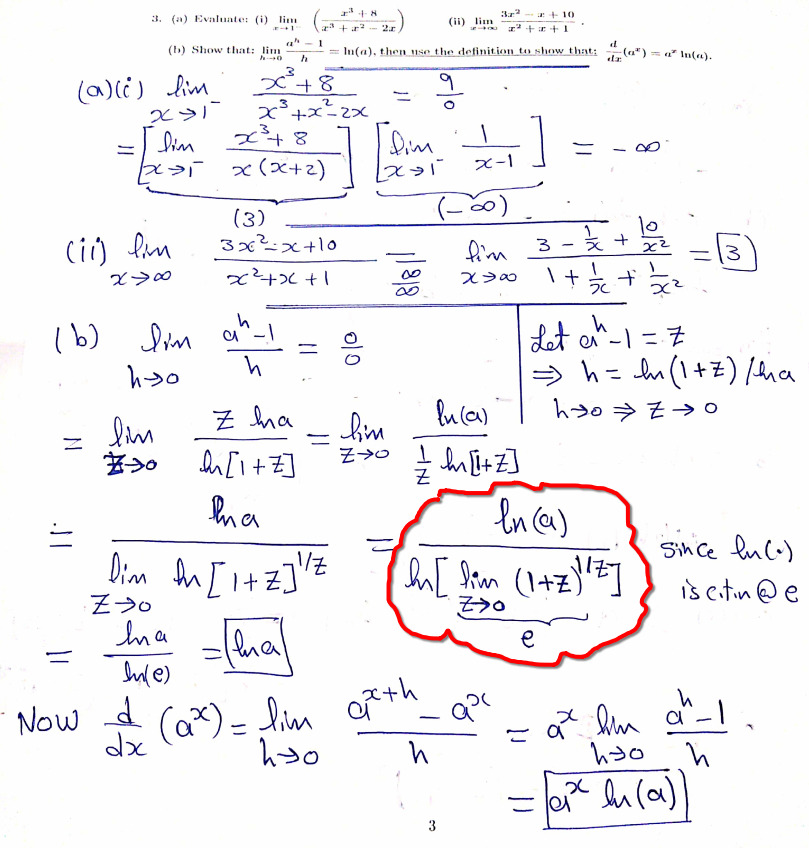 3. (a) Evaluate: (i) lim x→1⁻ ( (x³ + 8) / (x³ + x² − 2x) ) (ii) lim x→∞ (3x² − x + 10) / (x² + x + 1) .
(b) Show that: lim h→0 (aʰ − 1) / h = ln(a), then use the definition to show that: d/dx (aˣ) = aˣ ln(a).
(a)(i) lim x→1⁻ (x³+8) / (x³+x²−2x) = 9/0
= [ lim x→1⁻ (x³+8) / (x(x+2)) ] [ lim x→1⁻ 1 / (x−1) ] = −∞
(3) (−∞)
(ii) lim x→∞ (3x²−x+10) / (x²+x+1) = ∞/∞ lim x→∞ (3 − 1/x + 10/x²) / (1 + 1/x + 1/x²) = 3
(b) lim h→0 (aʰ−1) / h = 0/0
Let aʰ−1 = z
⇒ h = ln(1+z)/lna
h→0 ⇒ z→0
= lim z→0 (z lna) / (ln[1+z]) = lim z→0 ln(a) / (1/z ln[1+z])
= lna / (lim z→0 ln[1+z]^(1/z)) = ln(a) / (ln[ lim z→0 (1+z)^(1/z) ]) since ln(·)
e is ctn @ e
= lna / ln(e) = lna
Now d/dx (aˣ) = lim h→0 (a^(x+h) − aˣ) / h = aˣ lim h→0 (aʰ−1) / h .
= aˣ ln(a)
3